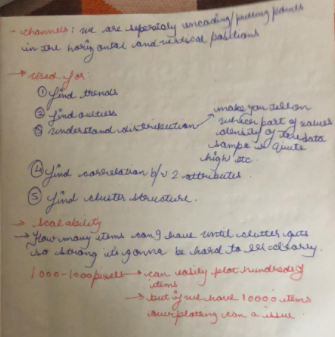 - channels: we are seperately encoding/putting points
in the horizontal and vertical positions
→ Used for:
① find trends
② find outliers
③ understand distribution → make you tell on
which part of values
density of the data
sample is quite
high etc.
④ find correlation b/w 2 attributes.
⑤ find cluster structure.
→ Scalability
→ How many items can I have until clutter gets
so strong it's gonna be hard to see clearly.
1000-1000 pixels → can easily plot hundreds of
items
→ but if we have 10000 items
overploting can a issue.